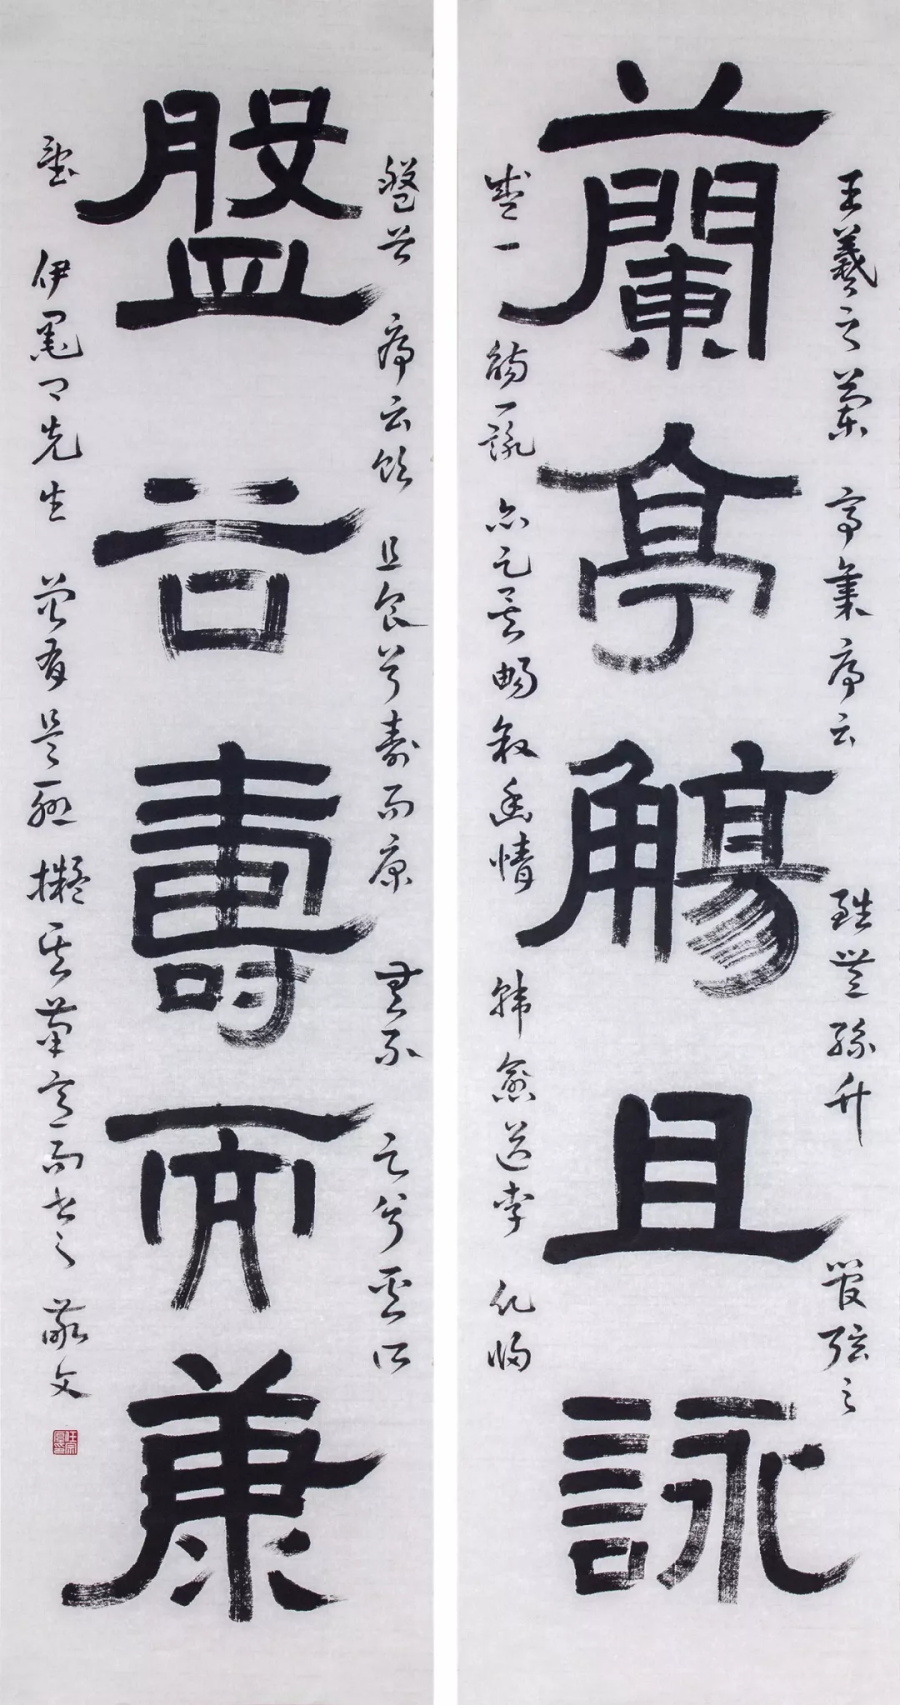 蘭亭觴且詠
王羲之蘭亭集序云雖無絲竹管弦之
盛一觴一詠亦足以暢敘幽情韓愈送李愿歸
盤谷壽而康
盤谷序云飲且食兮壽而康無不足兮奚所
望伊墨卿先生曾有是聯擬其筆意而書之敬文